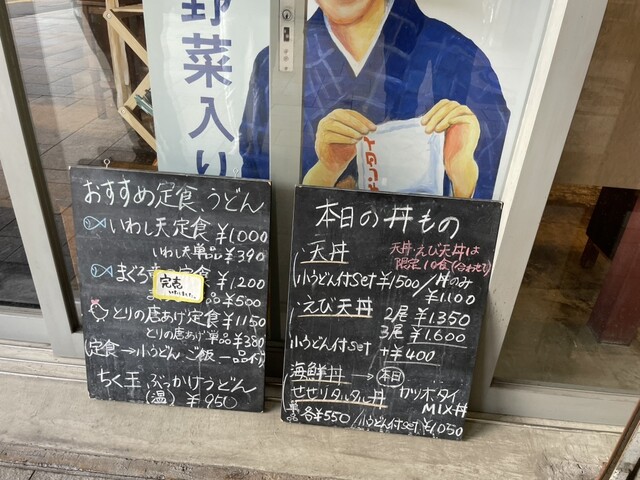 野菜入り
おすすめ定食 うどん
いわし天定食 ¥1000
いわし天単品 ¥390
まぐろ 定食 ¥1200
完売
いたしました
¥500
とりの唐あげ定食 ¥1150
とりの唐あげ単品 ¥380
(定食→小うどん ご飯 一品付)
ちく玉 ぶっかけうどん
(温) ¥950
本日の丼もの
天丼
天丼・えび天丼は
限定10食(合わせて)
(小うどん付Set ¥1500/丼のみ
¥1.100
えび天丼 2尾 ¥1.350
3尾 ¥1.600
小うどん付Set +¥400
海鮮丼→本日
せせりタルタル丼 カツオ、タイ
MIX丼
単品 各¥550/小うどん付Set ¥1,050